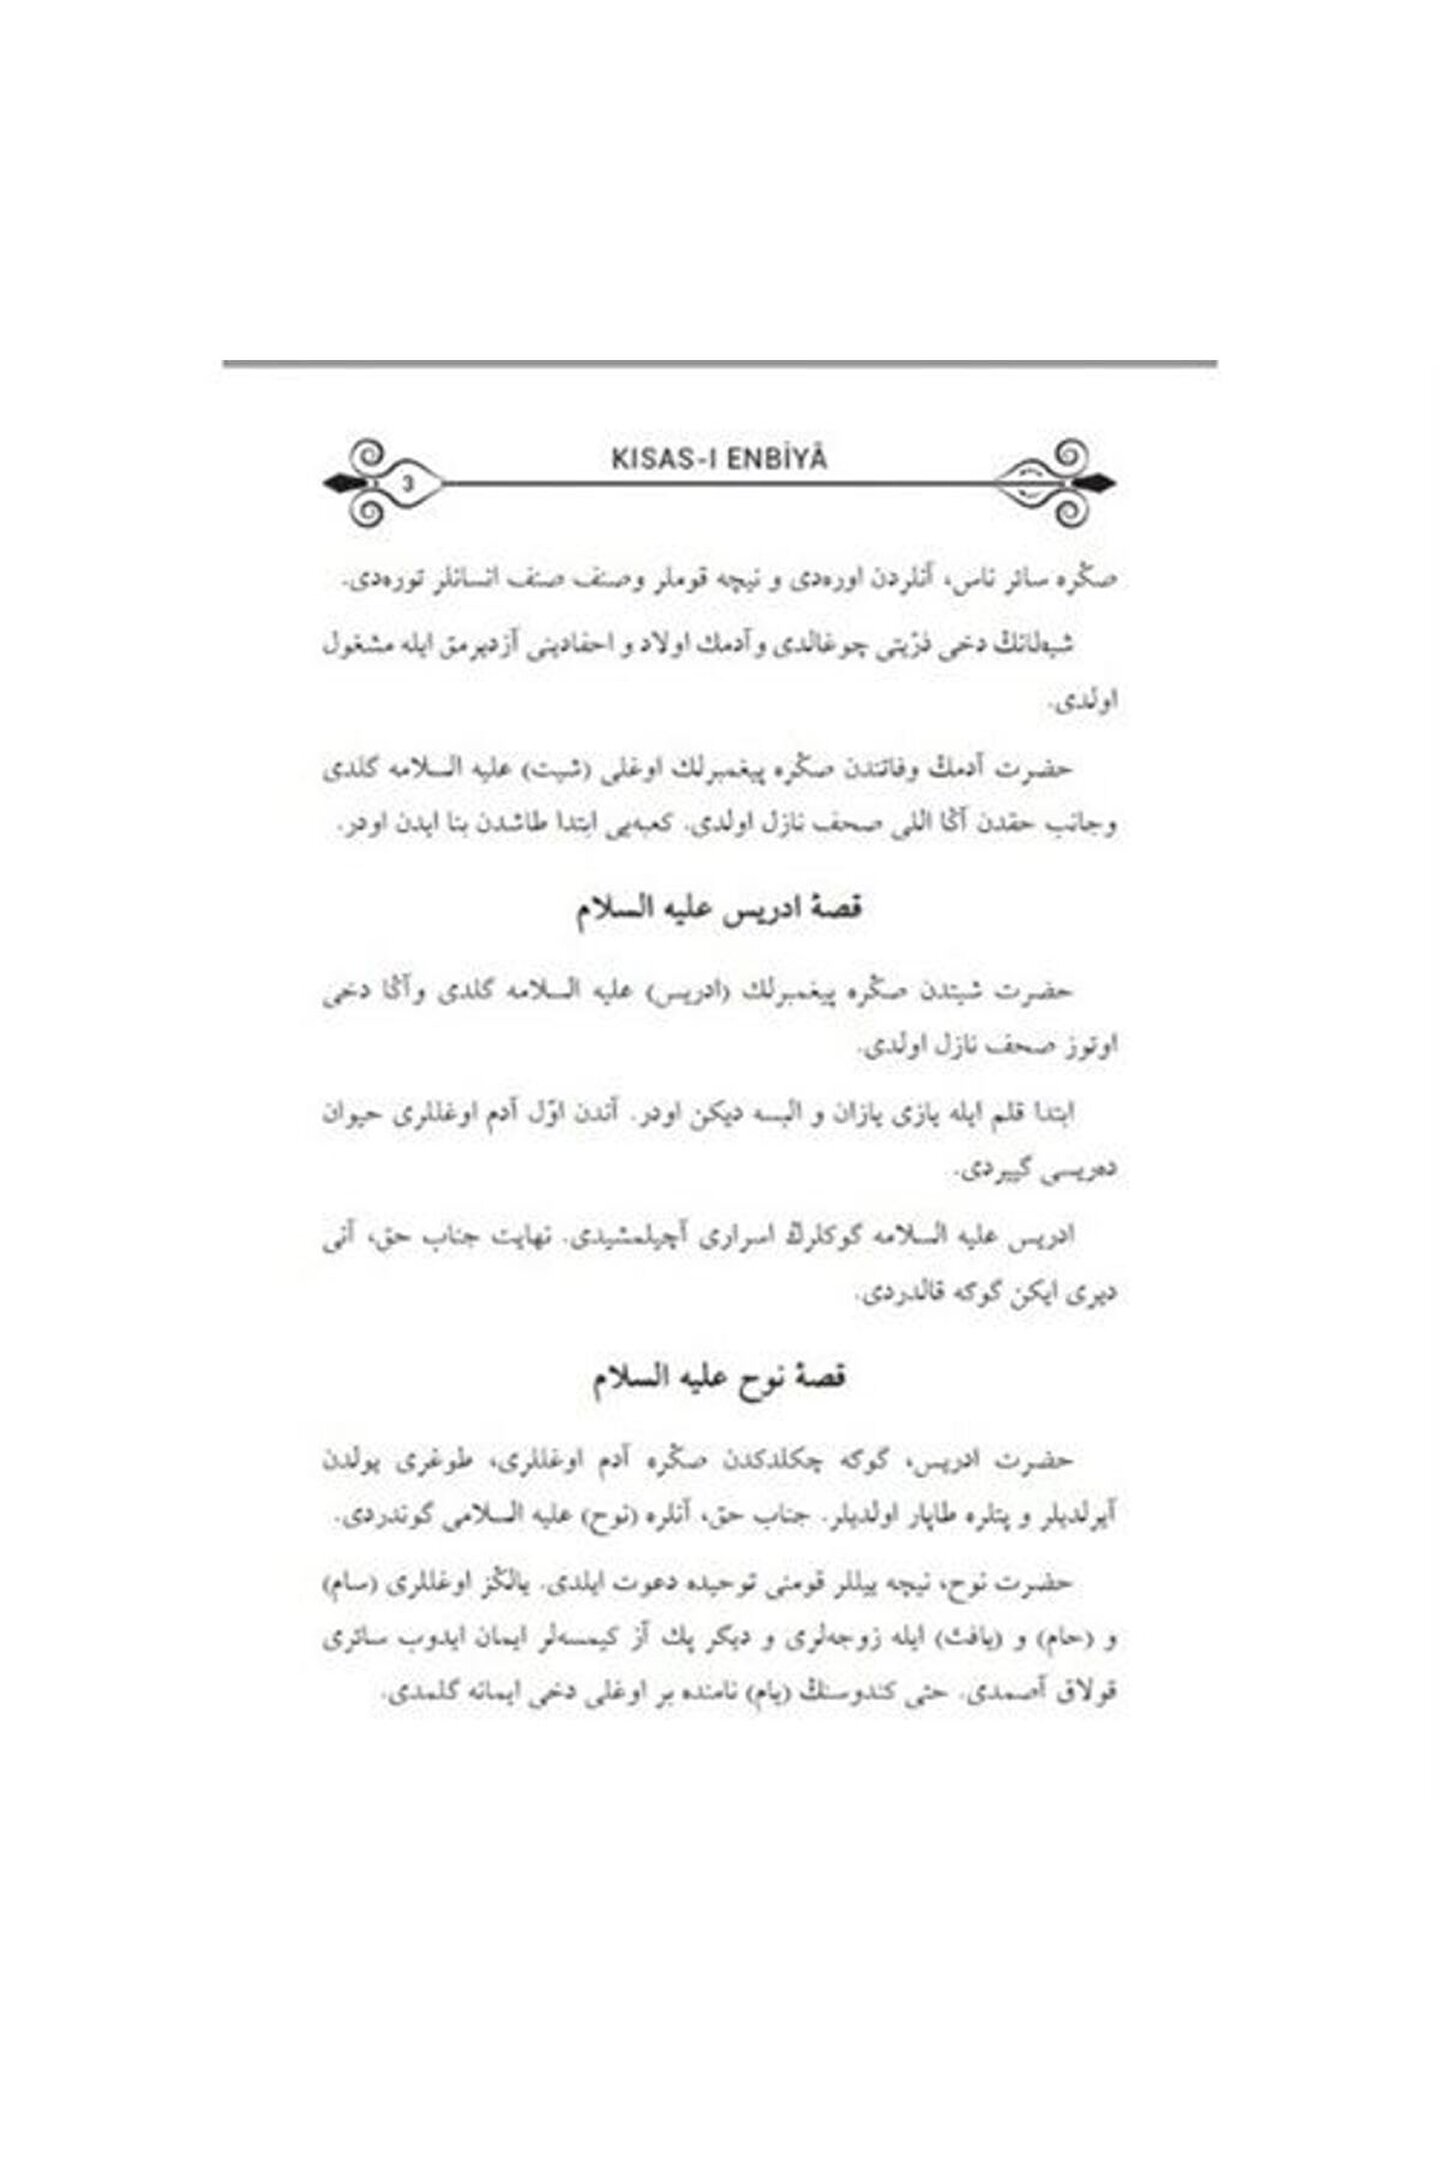 KISAS-I ENBİYÂ
3
صڭره سائر ناس، آنلردن اوره‌دى و نيچه قوملر وصنف صنف انسانلر توره‌دى.
دخى ذرّيتى چوغالدى وآدمك اولاد و احفادينى آزديرمق ايله مشغول
اولدى.
حضرت آدمڭ وفاتندن صڭره پيغمبرلك اوغلى (شيت) عليه السلامه گلدى
وجانب حقدن آڭا اللى صحف نازل اولدى. كعبه‌يى ابتدا طاشدن بنا ايدن اودر.
قصۀ ادريس عليه السلام
حضرت شيتدن صڭره پيغمبرلك (ادريس) عليه السلامه گلدى وآڭا دخى
اوتوز صحف نازل اولدى.
ابتدا قلم ايله يازى يازان و البسه ديكن اودر. آندن اوّل آدم اوغللرى حيوان
ده‌ريسى گييردى.
ادريس عليه السلامه گوكلرڭ اسرارى آچيلمشيدى. نهايت جناب حق، آنى
ديرى ايكن گوگه قالدردى.
قصۀ نوح عليه السلام
حضرت ادريس، گوگه چكلدكدن صڭره آدم اوغللرى، طوغرى يولدن
آيرلديلر و پتلره طاپار اولديلر. جناب حق، آنلره (نوح) عليه السلامى گوندردى.
حضرت نوح، نيچه ييللر قومنى توحيده دعوت ايلدى. يالڭز اوغللرى (سام)
و (حام) و (يافث) ايله زوجه‌لرى و ديگر پك آز كيمسه‌لر ايمان ايدوب سائرى
قولاق آصمدى. حتى كندوسنڭ (يام) نامنده بر اوغلى دخى ايمانه گلمدى.